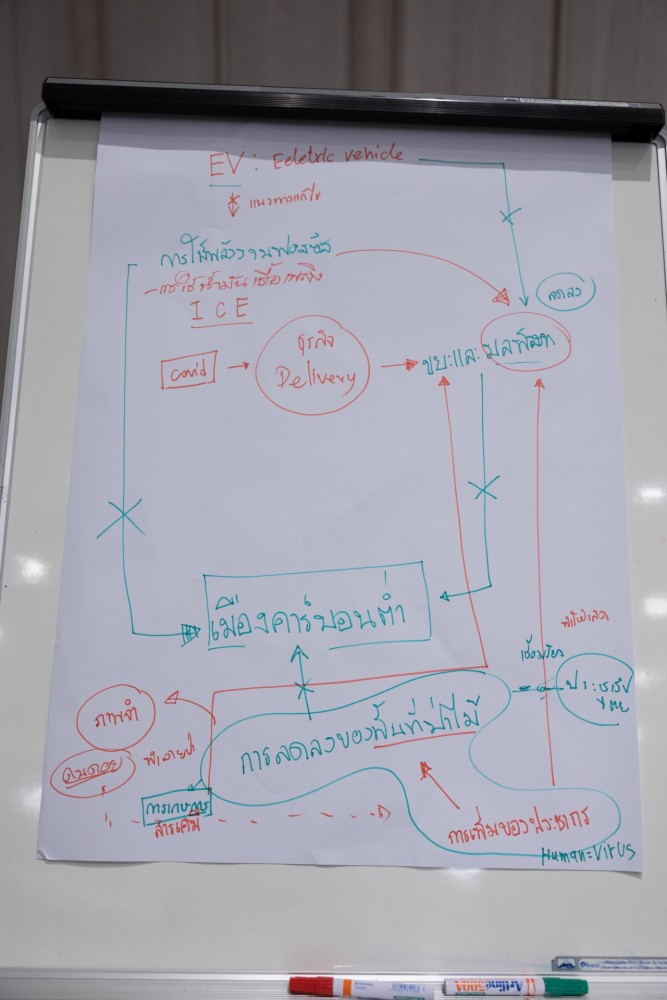 EV : Eeletric vehicle
แนวทางแก้ไข
การใช้พลังงานฟอสซิล
-การใช้น้ำมันเชื้อเพลิง
I C E
ลดลง
covid
ธุรกิจ
Delivery
ขยะและมลพิษ
เมืองคาร์บอนต่ำ
เชื่อมโยง
ภาพจำ
คนดอย
ทำลายป่า
การลดลงของพื้นที่ป่าไม้
การเกษตร
สารเคมี
การเพิ่มของประชากร
Human=Virus
Artline 500A